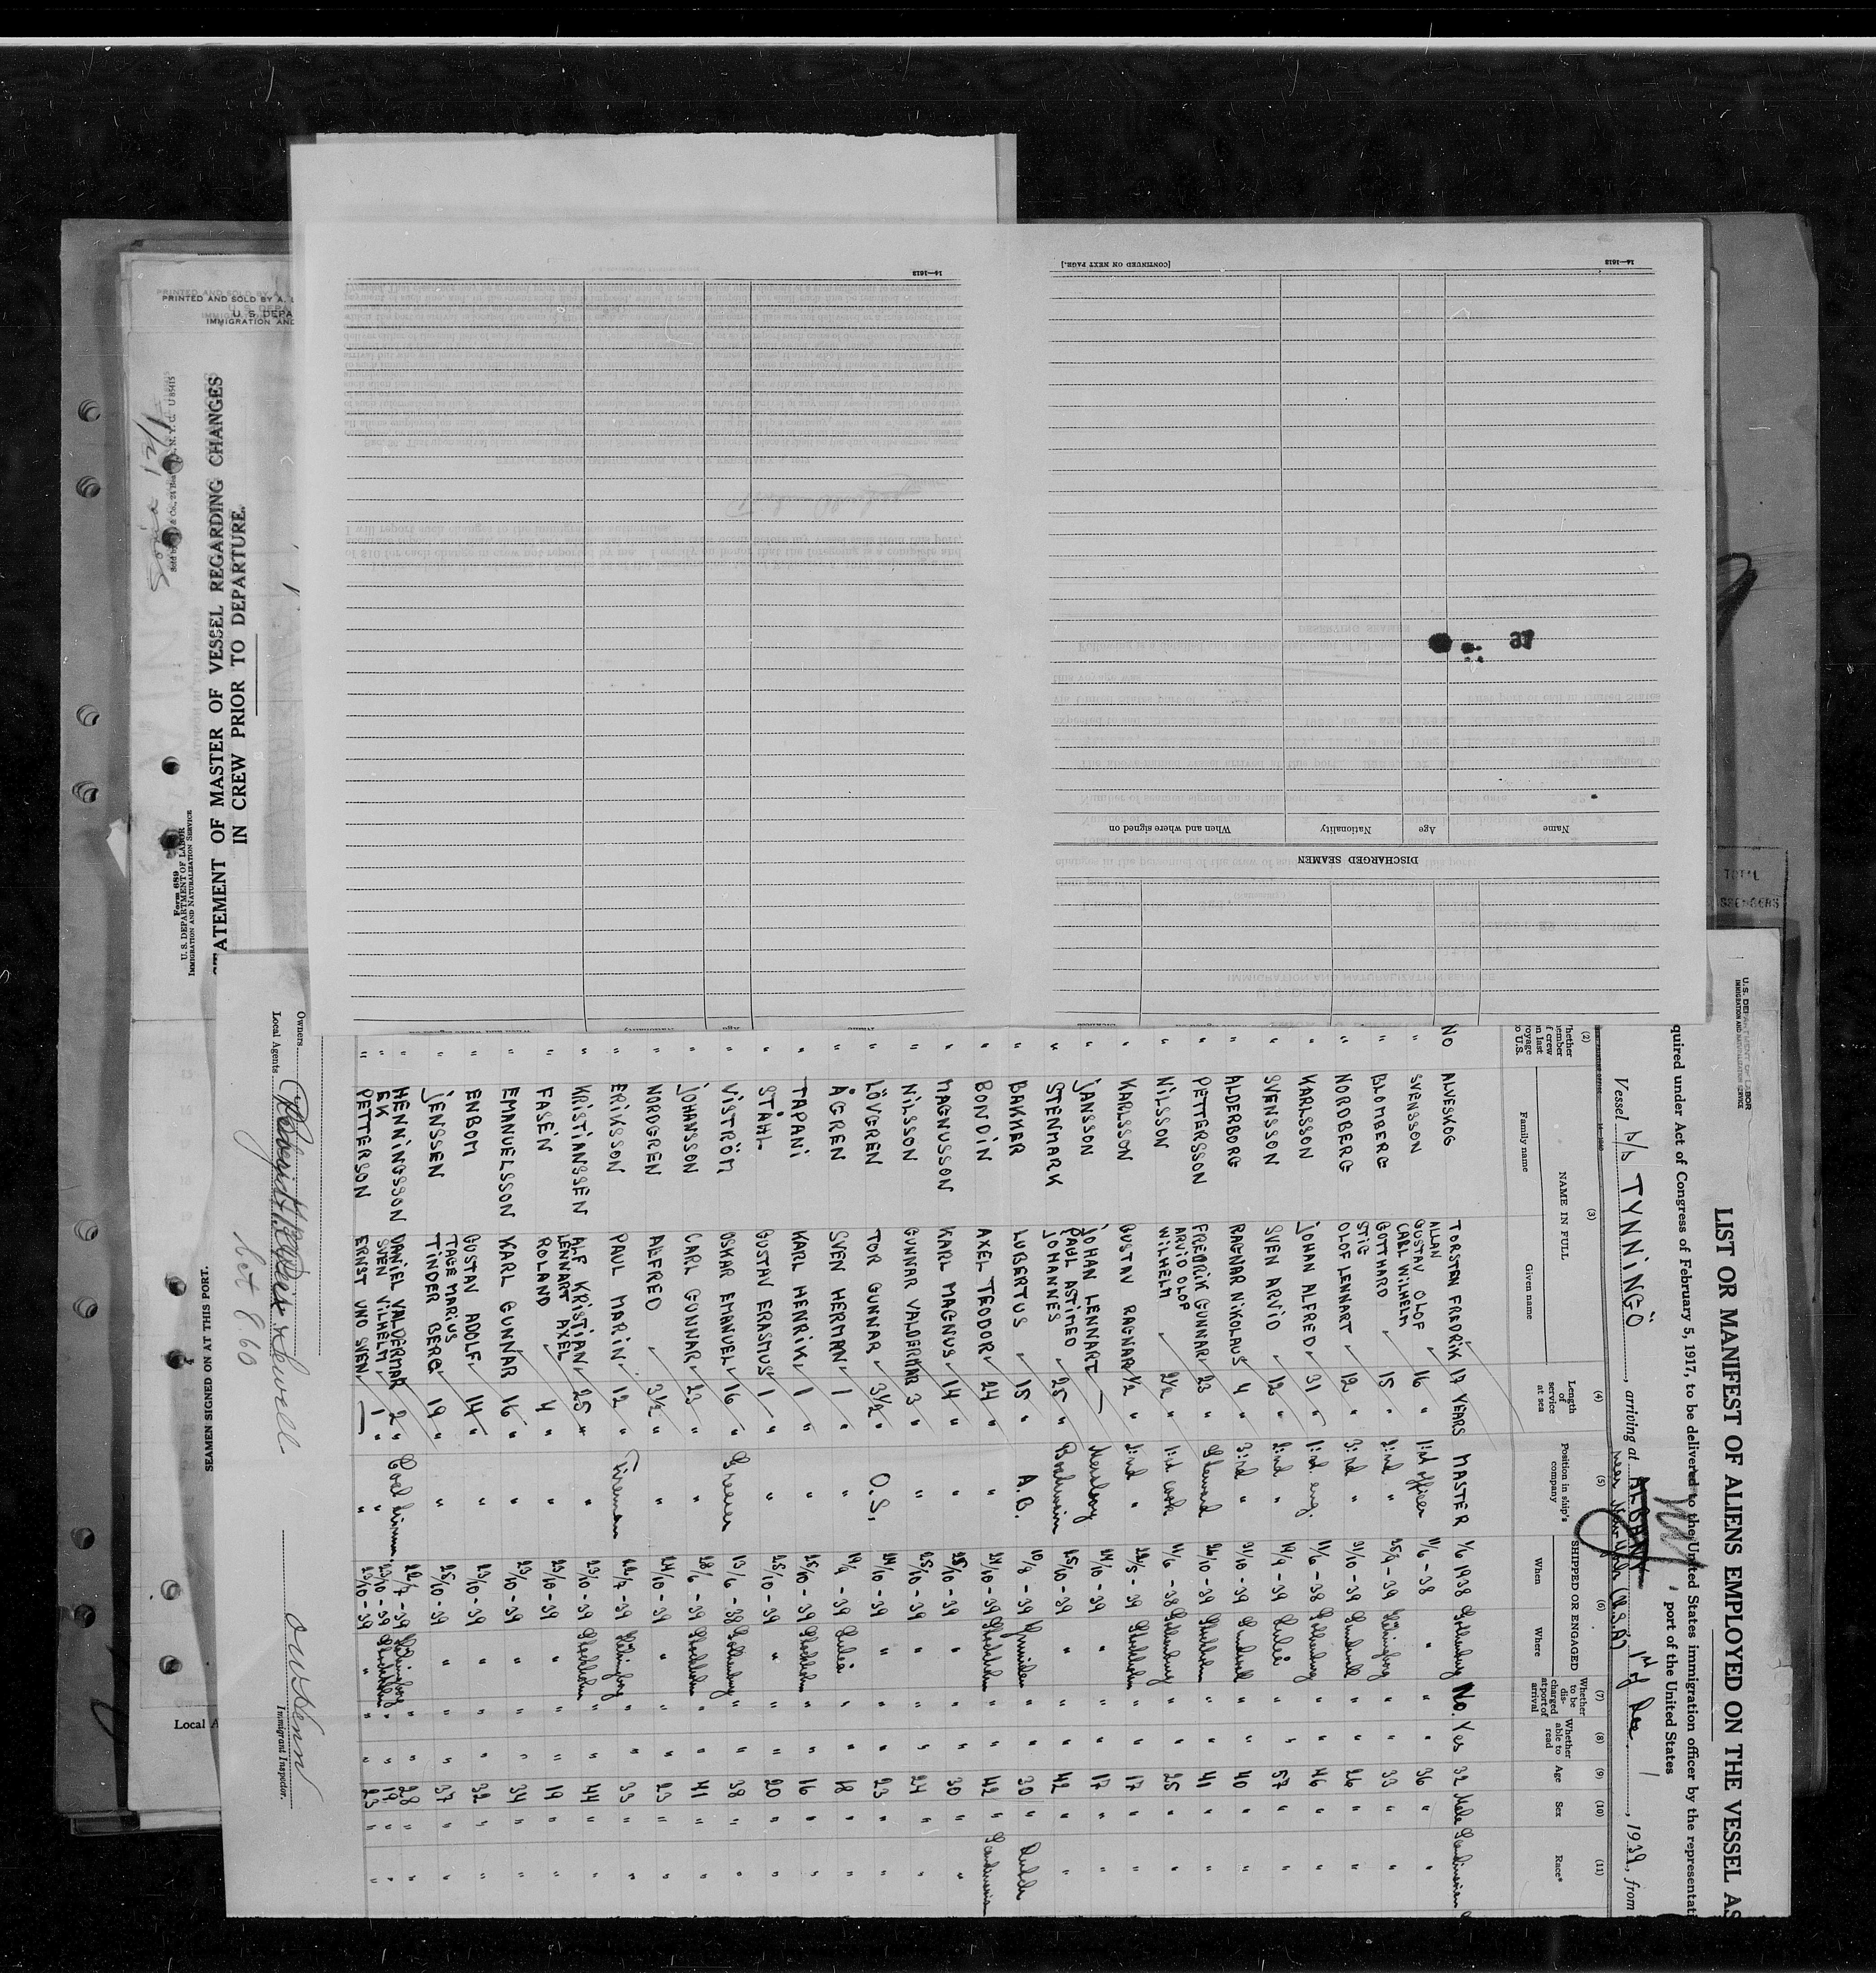 LIST OR MANIFEST OF ALIENS EMPLOYED ON THE VESSEL AS
quired under Act of Congress of February 5, 1917, to be delivered to the United States immigration officer by the representati
port of the United States
Vessel s/s TYNNINGÖ, arriving at ALBANY 1st of Dec., 1939, from
near New York (U.S.A)
U.S. DEPARTMENT OF LABOR
IMMIGRATION AND NATURALIZATION SERVICE
(2) (3) (4) (5) (6) (7) (8) (9) (10) (11)
NAME IN FULL
Family name Given name
Length of service at sea
Position in ship's company
SHIPPED OR ENGAGED
When Where
Whether to be discharged at port of arrival
Whether able to read
Age
Sex
Race*
NO ALVESKOG TORSTEN FREDRIK 17 YEARS MASTER 1/6 1938 Gothenburg No. Yes 32 Male Scandinavian
" SVENSSON ALLAN GUSTAV OLOF 16 " 1:st officer 11/6 - 38 " " " 36 " "
" BLOMBERG CARL WILHELM GOTTHARD 15 " 2:nd " 25/9 - 39 Helsingborg " " 33 " "
" NORDBERG STIG OLOF LENNART 12 " 3:rd " 31/10 - 39 Sundsvall " " 26 " "
" KARLSSON JOHAN ALFRED 31 " 1:st eng. 11/6 - 38 Gothenburg " " 46 " "
" SVENSSON SVEN ARVID 12 " 2:nd " 19/9 - 39 Luleå " " 57 " "
" ALDERBORG RAGNAR NIKOLAUS 4 " 3:rd " 31/10 - 39 Sundsvall " " 40 " "
" PETTERSSON FREDRIK GUNNAR 23 " Steward 26/10 - 39 Stockholm " " 41 " "
" NILSSON ARVID OLOF WILHELM 2½ " 1:st cook 11/6 - 38 Gothenburg " " 25 " "
" KARLSSON GUSTAV RAGNAR ½ " 2:nd " 22/5 - 39 Stockholm " " 17 " "
" JANSSON JOHAN LENNART — Messboy 24/10 - 39 " " " 17 " "
" STENMARK PAUL ASTIMEO JOHANNES 25 " Boatswain 25/10 - 39 " " " 42 " "
" BAKKER LUBERTUS 15 " A.B. 10/8 - 39 Ijmuiden " " 30 " Dutch
" BONDIN AXEL TEODOR 24 " " 24/10 - 39 Stockholm " " 42 " Scandinavian
" MAGNUSSON KARL MAGNUS 14 " " 25/10 - 39 " " " 30 " "
" NILSSON GUNNAR VALDEMAR 3 " " 25/10 - 39 " " " 24 " "
" LÖVGREN TOR GUNNAR 3½ " O.S. 24/10 - 39 " " " 23 " "
" ÅGREN SVEN HERMAN 1 " " 19/9 - 39 Luleå " " 18 " "
" TAPANI KARL HENRIK 1 " " 25/10 - 39 Stockholm " " 16 " "
" STÅHL GUSTAV ERASMUS 1 " " 25/10 - 39 " " " 20 " "
" VISTRÖM OSKAR EMANUEL 16 " Greaser 13/6 - 38 Gothenburg " " 38 " "
" JOHANSSON CARL GUNNAR 23 " " 28/6 - 39 Stockholm " " 41 " "
" NORDGREN ALFRED 3½ " " 24/10 - 39 " " " 23 " "
" ERIKSSON PAUL MARIN 12 " Fireman 22/7 - 39 Helsingborg " " 33 " "
" KRISTIANSSEN ALF KRISTIAN 25 " " 23/10 - 39 Stockholm " " 44 " "
" FASEN LENNART AXEL ROLAND 4 " " 23/10 - 39 " " " 19 " "
" EMANUELSSON KARL GUNNAR 16 " " 23/10 - 39 " " " 34 " "
" ENBOM GUSTAV ADOLF 14 " " 23/10 - 39 " " " 32 " "
" JENSSEN TAGE MARIUS TINDER BERG 19 " " 25/10 - 39 " " " 37 " "
" HENNINGSSON DANIEL VALDERMAR 2 " Coal trimm. 22/7 - 39 Helsingborg " " 28 " "
" EK SVEN VILHELM 1 " " 23/10 - 39 Stockholm " " 19 " "
" PETTERSON ERNST UNO SVEN — " 23/10 - 39 " " " 23 " "
Owners
Local Agents
Immigrant Inspector.
SEAMEN SIGNED ON AT THIS PORT.
Local A
PRINTED AND SOLD BY A.
U. S. DEPA
IMMIGRATION AND
Form 689
U. S. DEPARTMENT OF LABOR
IMMIGRATION AND NATURALIZATION SERVICE
STATEMENT OF MASTER OF VESSEL REGARDING CHANGES
IN CREW PRIOR TO DEPARTURE.
[CONTINUED ON NEXT PAGE.]
14—1613
14—1613
DISCHARGED SEAMEN
Name Age Nationality When and where signed on
37